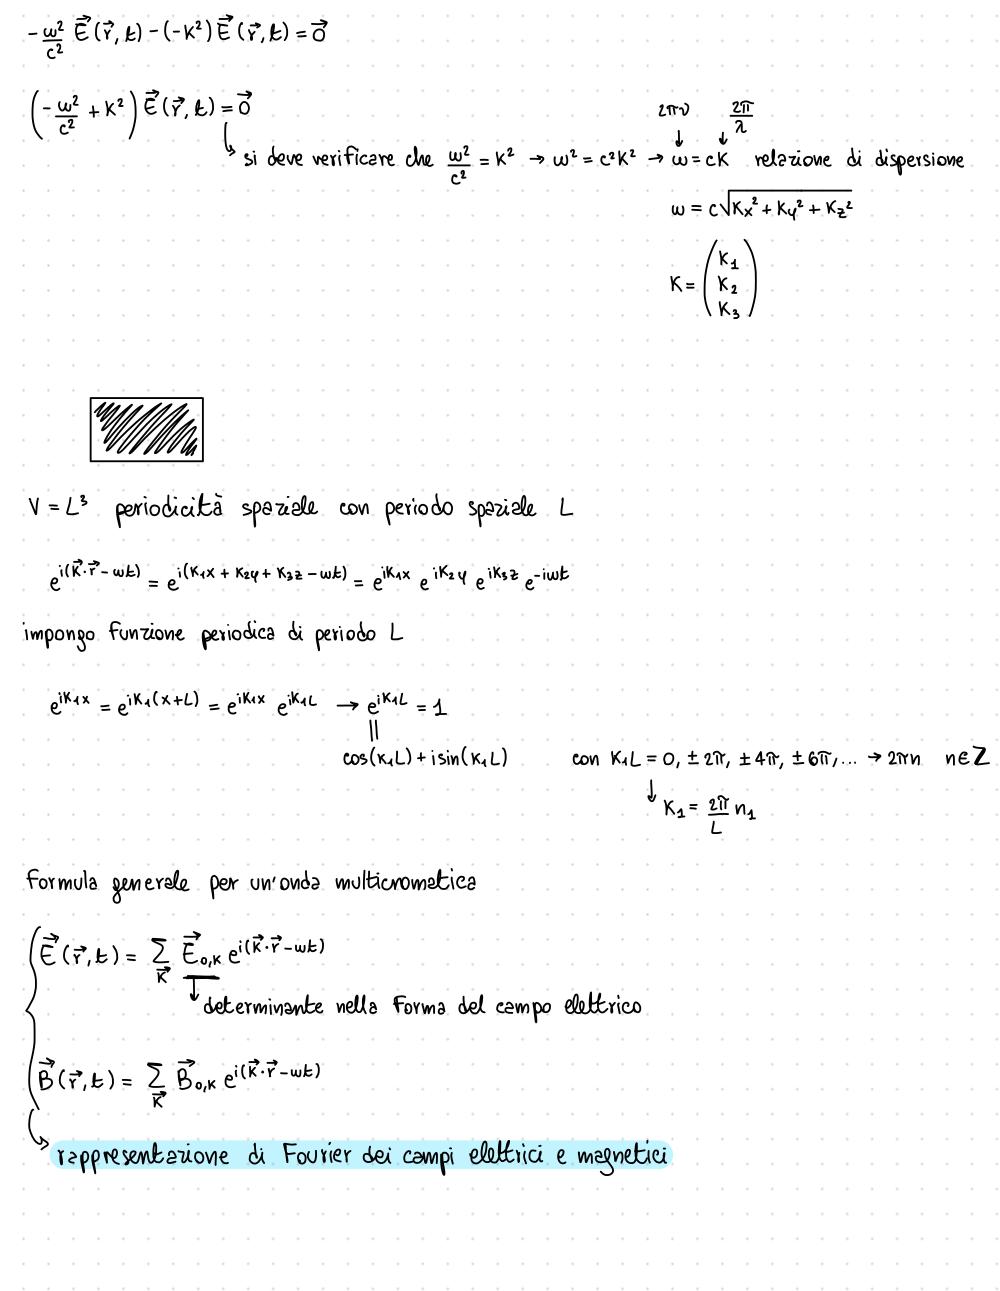 -ω²/c² E⃗(r⃗,t) - (-K²) E⃗(r⃗,t) = 0⃗
(-ω²/c² + K²) E⃗(r⃗,t) = 0⃗
2πν 2π/λ
↓ ↓
↳ si deve verificare che ω²/c² = K² → ω² = c²K² → ω = cK relazione di dispersione
ω = c√(Kx² + Ky² + Kz²)
K = (K₁ K₂ K₃)
V = L³ periodicità spaziale con periodo spaziale L
e^i(K⃗·r⃗ - ωt) = e^i(K₁x + K₂y + K₃z - ωt) = e^iK₁x e^iK₂y e^iK₃z e^-iωt
impongo funzione periodica di periodo L
e^iK₁x = e^iK₁(x+L) = e^iK₁x e^iK₁L → e^iK₁L = 1
||
cos(K₁L) + isin(K₁L) con K₁L = 0, ±2π, ±4π, ±6π,... → 2πn n∈Z
↓ K₁ = 2π/L n₁
formula generale per un'onda multicromatica
E⃗(r⃗,t) = Σ_K⃗ E⃗₀,K e^i(K⃗·r⃗ - ωt)
↓ determinante nella forma del campo elettrico
B⃗(r⃗,t) = Σ_K⃗ B⃗₀,K e^i(K⃗·r⃗ - ωt)
↳ rappresentazione di Fourier dei campi elettrici e magnetici